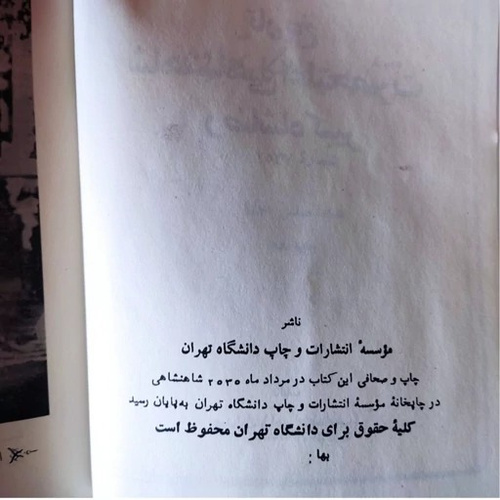 ناشر
مؤسسهٔ انتشارات و چاپ دانشگاه تهران
چاپ و صحافی این کتاب در مرداد ماه ۲۵۳۵ شاهنشاهی
در چاپخانهٔ مؤسسهٔ انتشارات و چاپ دانشگاه تهران به‌پایان رسید
کلیهٔ حقوق برای دانشگاه تهران محفوظ است
بها :